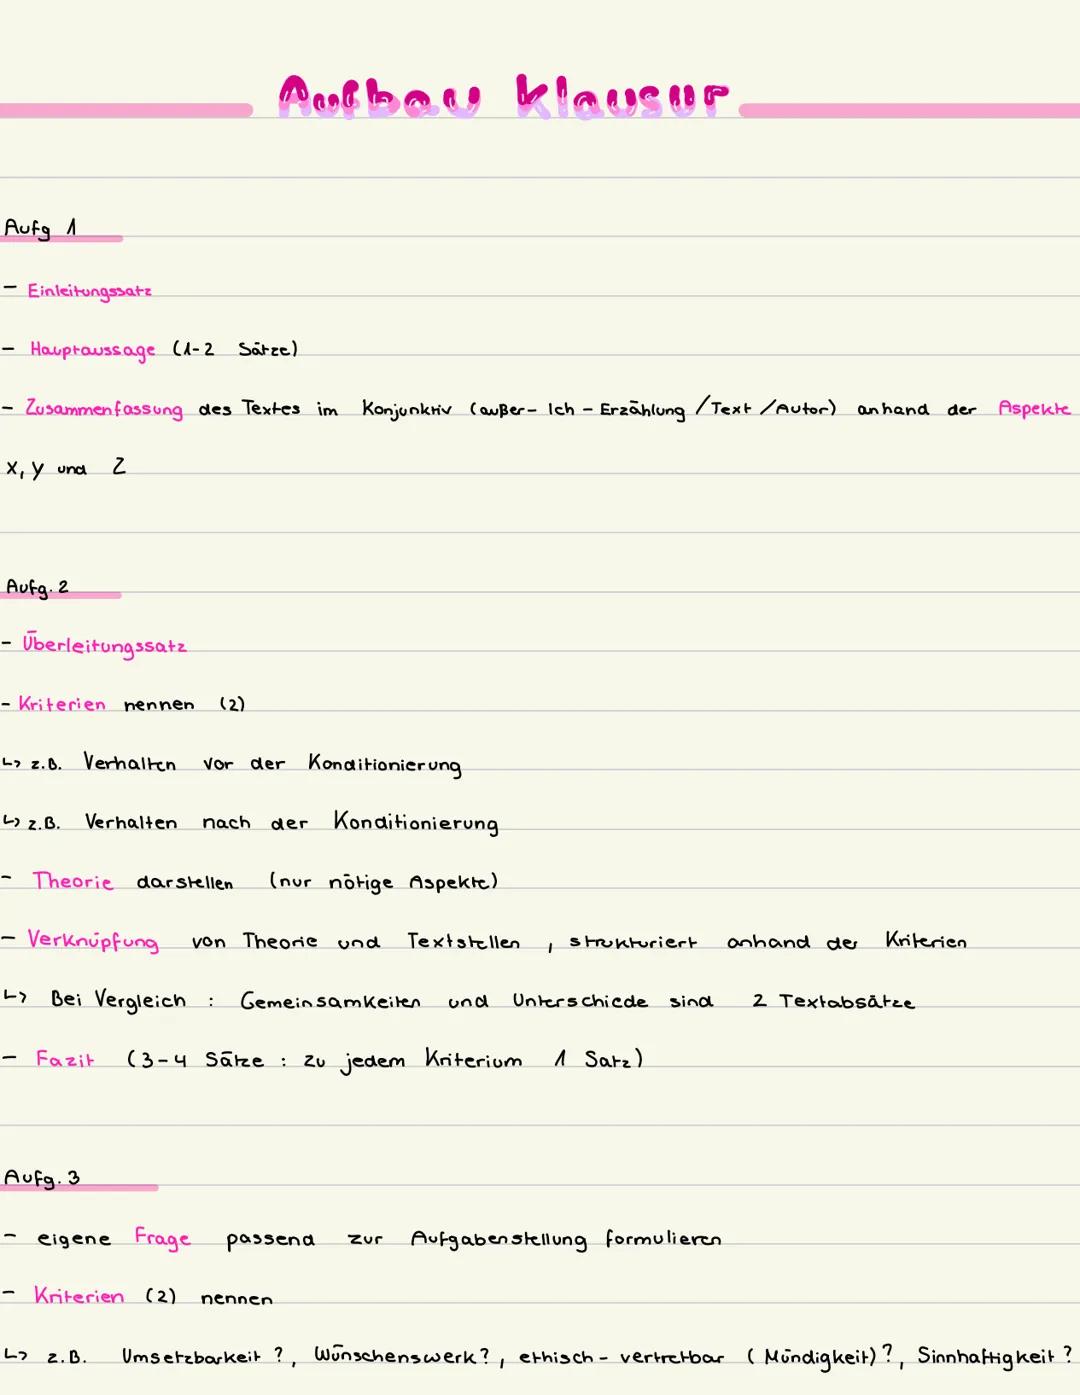 Aufbau Klausur
Aufg 1
- Einleitungssatz
- Hauptaussage (1-2 Sätze)
- Zusammenfassung des Textes im Konjunktiv (außer- Ich - Erzählung /Text /Autor) anhand der Aspekte
X, Y und Z
Aufg. 2
- Überleitungssatz
- Kriterien nennen (2)
↳ z.B. Verhalten vor der Konditionierung
↳ z.B. Verhalten nach der Konditionierung
- Theorie darstellen (nur nötige Aspekte)
- Verknüpfung von Theorie und Textstellen , strukturiert anhand der Kriterien
↳ Bei Vergleich : Gemeinsamkeiten und Unterschiede sind 2 Textabsätze
- Fazit (3-4 Sätze : zu jedem Kriterium 1 Satz)
Aufg. 3
- eigene Frage passend zur Aufgabenstellung formulieren
- Kriterien (2) nennen
↳ z.B. Umsetzbarkeit ?, Wünschenswerk?, ethisch- vertretbar (Mündigkeit)?, Sinnhaftigkeit ?